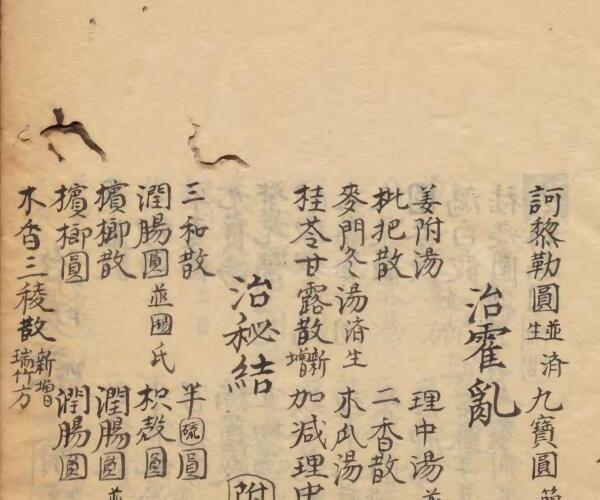 訶黎勒圓並濟生 九寶圓
治霍亂
姜附湯 理中湯
枇把散 二香散
麥門冬湯済生 木瓜湯
桂苓甘露散新增 加減理中
治秘結
附
三和散 半硫圓
潤腸圓並國氏 枳殼圓
檳榔散 潤腸圓
檳榔圓 潤腸圓
木香三稜散新增瑞竹方